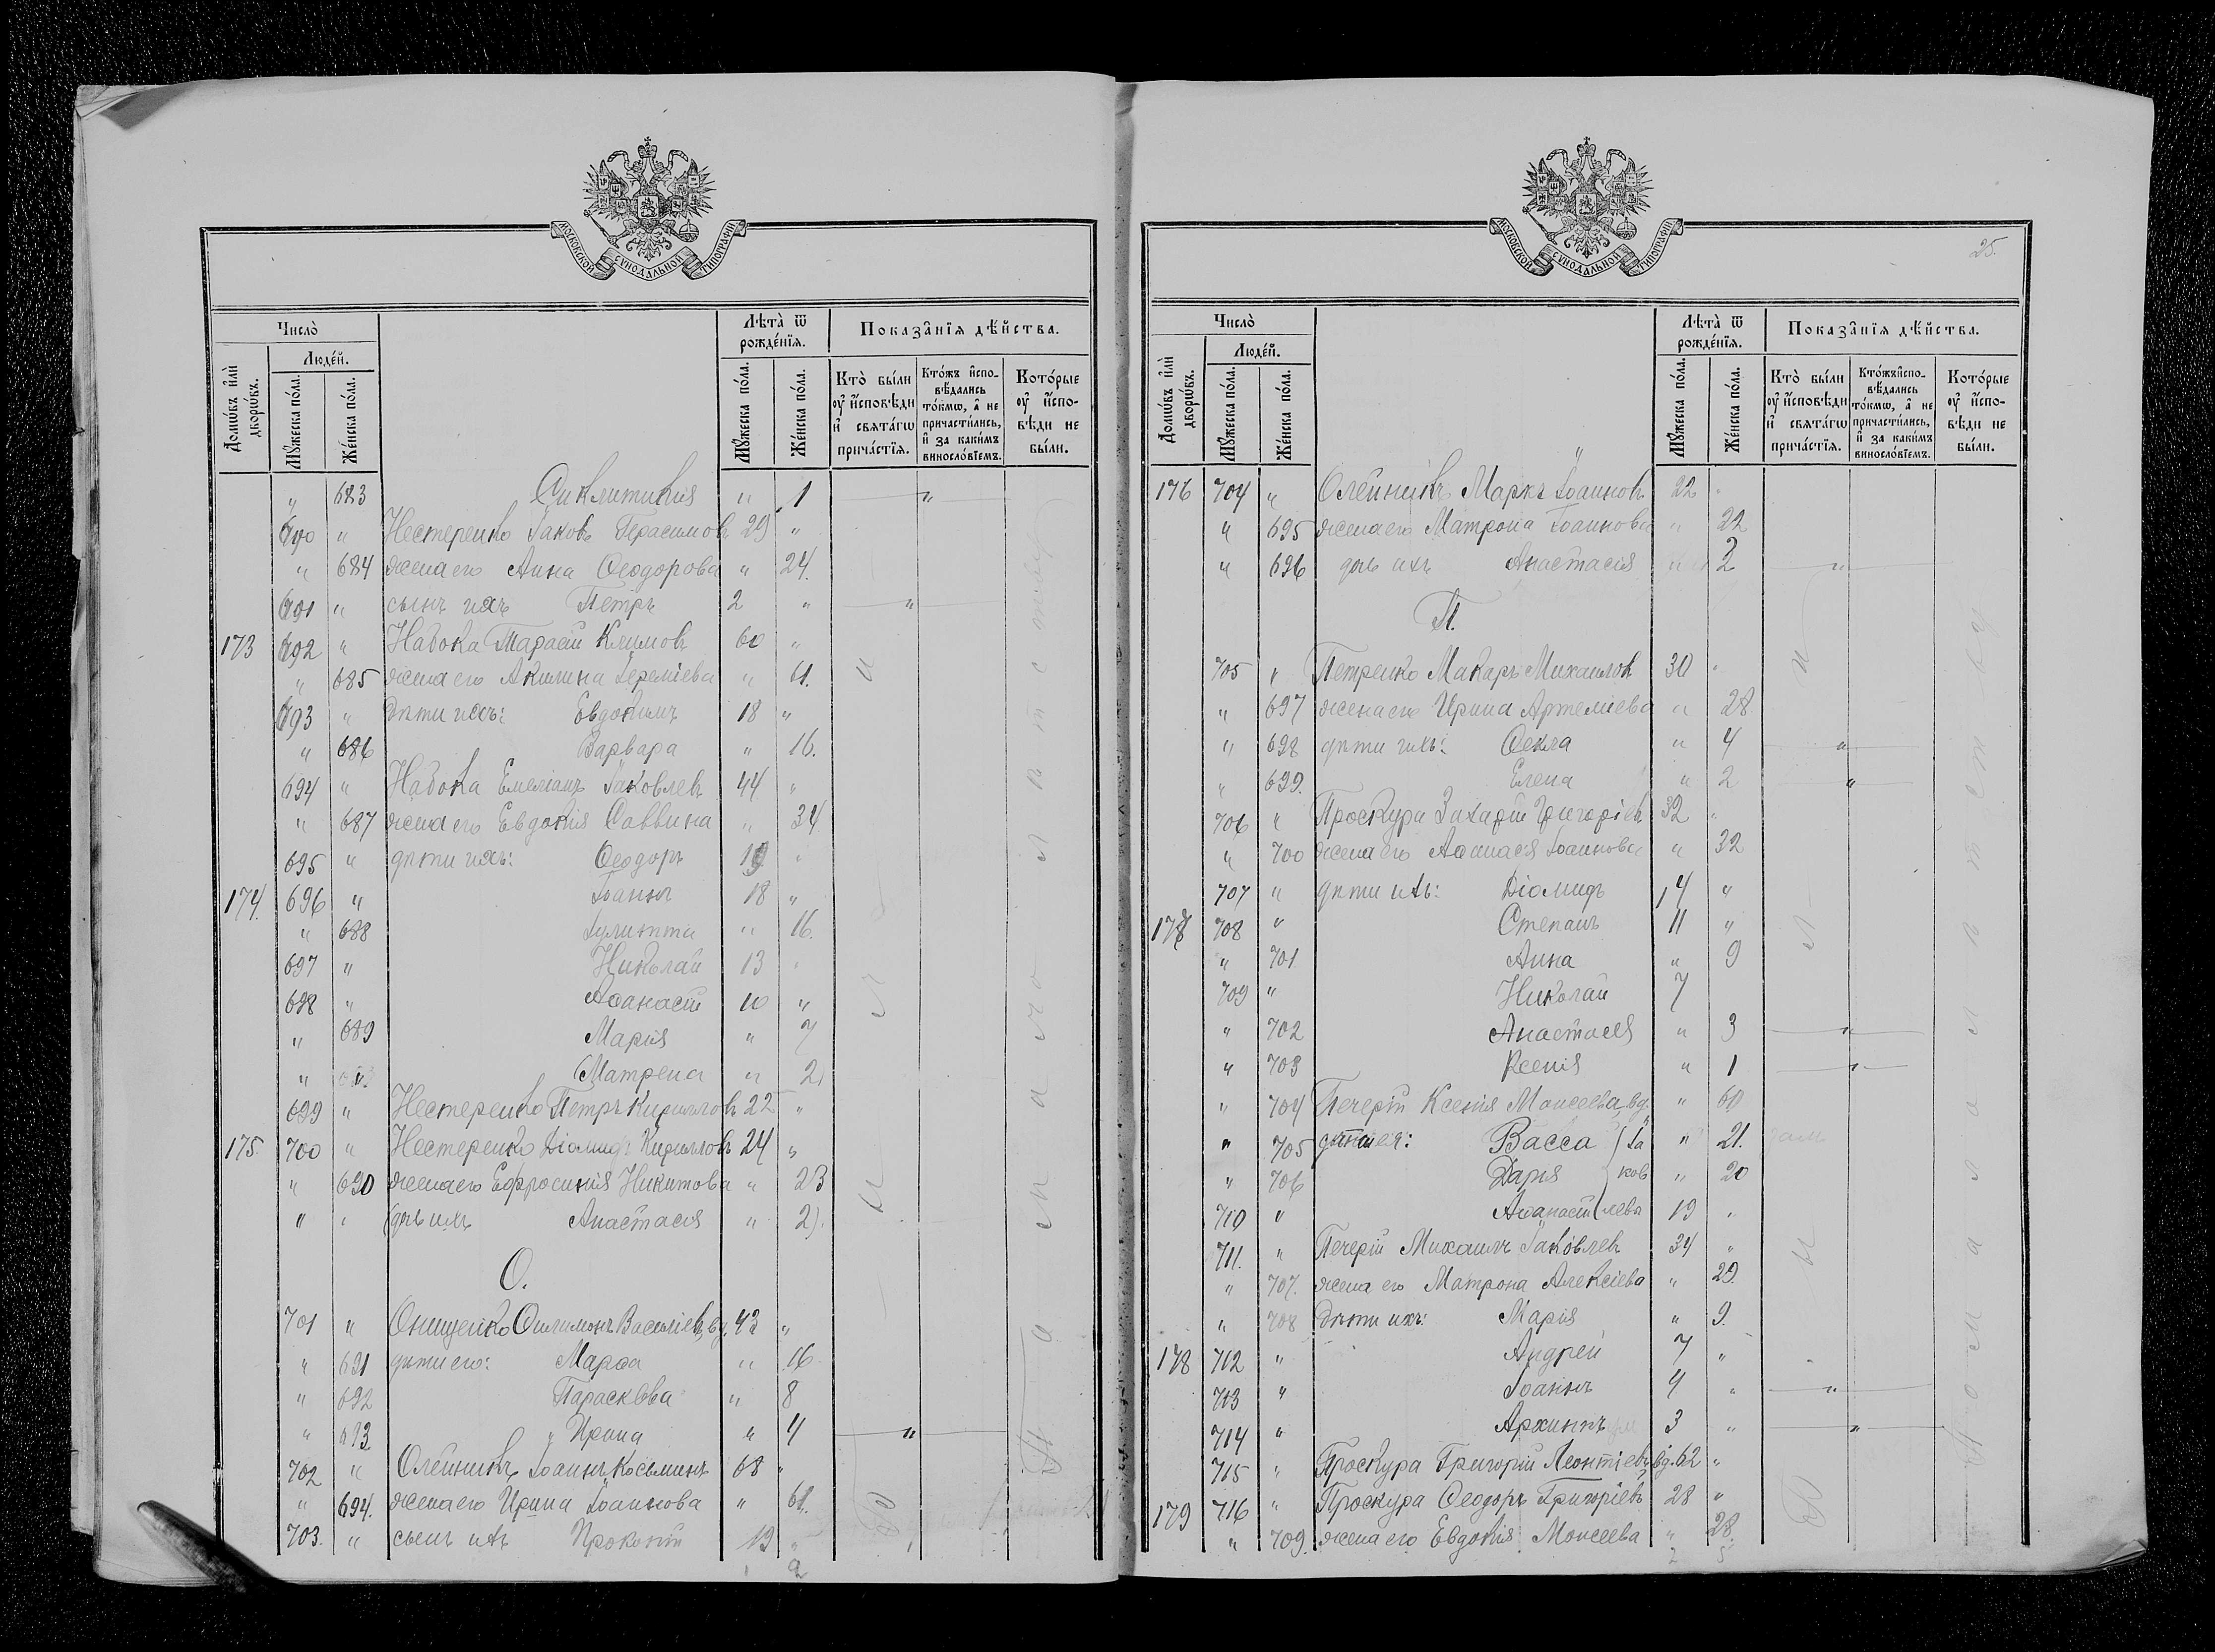 МОСКОВСКОЙ СѴНОДАЛЬНОЙ ТИПОГРАФІИ
Число̀
Людéй.
Домѡ́въ и҆лѝ дворѡ́въ.
Мꙋ́жеска по́ла.
Же́нска по́ла.
Лѣта̀ ѿ рожде́нїѧ.
Мꙋ́жеска по́ла.
Же́нска по́ла.
Показа̑нїѧ дѣ́йства.
Кто̀ бы́ли оу҆ и҆́сповѣди и҆ свѧта́гѡ прича́стїѧ.
Кто́жъ и҆спо-вѣ́дались то́кмѡ, а҆ не причасти́лись, и҆ за каки́мъ винослѡ́вїемъ.
Кото́рые оу҆ и҆спо-вѣди не бы́ли.
" 683 Сиклитикія " 1 "
690 " Нестеренко Іаковъ Герасимовъ 29 "
" 684 жена его Анна Ѳеодорова " 24.
691 " сынъ ихъ Петръ 2 " "
173 692 " Набока Тарасій Климовъ 60 "
" 685 жена его Акилина Іереміева " 61.
693 " дѣти ихъ: Евдокимъ 18 "
" 686 Варвара " 16.
694 " Набока Емеліанъ Іаковлевъ 44 "
" 687 жена его Евдокія Саввина " 34
695 " дѣти ихъ: Ѳеодоръ 19 "
174. 696 " Іоаннъ 18 "
" 688 Іулитта " 16.
697 " Николай 13 "
698 " Аѳанасій 10 "
" 689 Марія " 7
" " Матрена " 2
699 " Нестеренко Петръ Кирилловъ 22 "
175. 700 " Нестеренко Діомидъ Кирилловъ 24 "
" 690 жена его Ефросинія Никитова " 23
" " (дчь ихъ Анастасія " 2).
О.
701 " Онищенко Филимонъ Василіевъ вд. 43 "
" 691 дѣти его: Марѳа " 16
" 692 Параскева " 8
" 693 Ирина " 4 "
702 " Олейникъ Іоаннъ Косьминъ 68 "
" 694. жена его Ирина Іоаннова " 61.
703. " сынъ ихъ Прокопій 19 "
25.
МОСКОВСКОЙ СѴНОДАЛЬНОЙ ТИПОГРАФІИ
Число̀
Людéй.
Домѡ́въ и҆лѝ дворѡ́въ.
Мꙋ́жеска по́ла.
Же́нска по́ла.
Лѣта̀ ѿ рожде́нїѧ.
Мꙋ́жеска по́ла.
Же́нска по́ла.
Показа̑нїѧ дѣ́йства.
Кто̀ бы́ли оу҆ и҆́сповѣди и҆ свѧта́гѡ прича́стїѧ.
Кто́жъ и҆спо-вѣ́дались то́кмѡ, а҆ не причасти́лись, и҆ за каки́мъ винослѡ́вїемъ.
Кото́рые оу҆ и҆спо-вѣди не бы́ли.
176 704 " Олейникъ Маркъ Іоанновъ 22 "
" 695 жена его Матрона Іоаннова " 22
" 696 дчь ихъ Анастасія " 2 "
П.
705 " Петренко Макаръ Михаиловъ 30 "
" 697 жена его Ирина Артеміева " 28
" 698 дѣти ихъ: Ѳекла " 4 "
" 699. Елена " 2 "
706 " Проскура Захарій Григоріевъ 32 "
" 700 жена его Аѳанасія Іоаннова " 32
707 " дѣти ихъ: Діомидъ 14 "
177 708 " Степанъ 11 "
" 701 Анна " 9
709 " Николай 7
" 702 Анастасія " 3 "
" 703 Ксенія " 1 "
" 704 Печерій Ксенія Моисеева, вд. " 60
" 705 дѣти ея: Васса (Іа " 21.
" 706 Дарія ков " 20
710 " Аѳанасій лева 19 "
711. " Печерій Михаилъ Іаковлевъ 34 "
" 707. жена его Матрона Алексіева " 29.
" 708 дѣти ихъ: Марія " 9.
178 712 " Андрей 7 "
713 " Іоаннъ 4 " "
714 " Архиппъ 3 " "
715 " Проскура Григорій Леонтіевъ, вд. 62 "
179 716 " Проскура Ѳеодоръ Григоріевъ 28 "
" 709. жена его Евдокія Моисеева " 28.